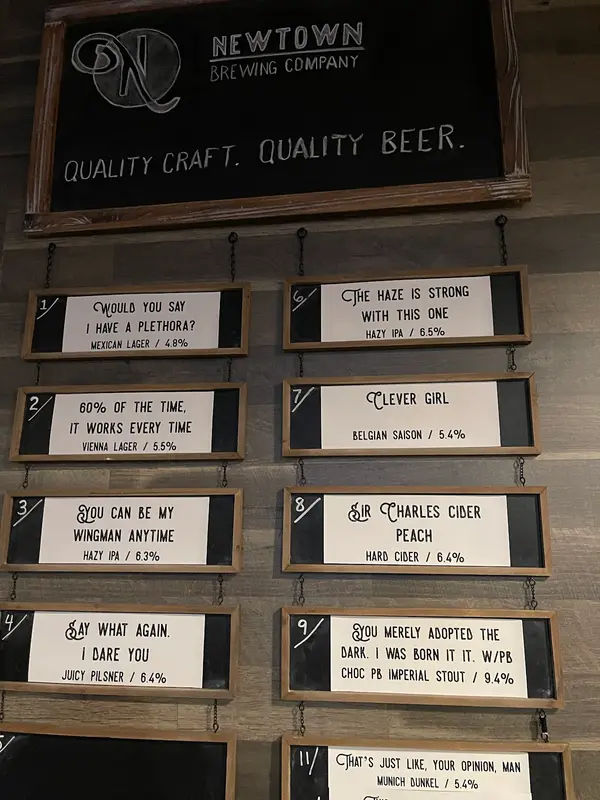 N
NEWTOWN
BREWING COMPANY
QUALITY CRAFT. QUALITY BEER.
1/
WOULD YOU SAY
I HAVE A PLETHORA?
MEXICAN LAGER / 4.8%
2/
60% OF THE TIME,
IT WORKS EVERY TIME
VIENNA LAGER / 5.5%
3/
YOU CAN BE MY
WINGMAN ANYTIME
HAZY IPA / 6.3%
4/
SAY WHAT AGAIN.
I DARE YOU
JUICY PILSNER / 6.4%
5/
6/
THE HAZE IS STRONG
WITH THIS ONE
HAZY IPA / 6.5%
7/
CLEVER GIRL
BELGIAN SAISON / 5.4%
8/
SIR CHARLES CIDER
PEACH
HARD CIDER / 6.4%
9/
YOU MERELY ADOPTED THE
DARK. I WAS BORN IT IT. W/PB
CHOC PB IMPERIAL STOUT / 9.4%
11/
THAT'S JUST LIKE, YOUR OPINION, MAN
MUNICH DUNKEL / 5.4%